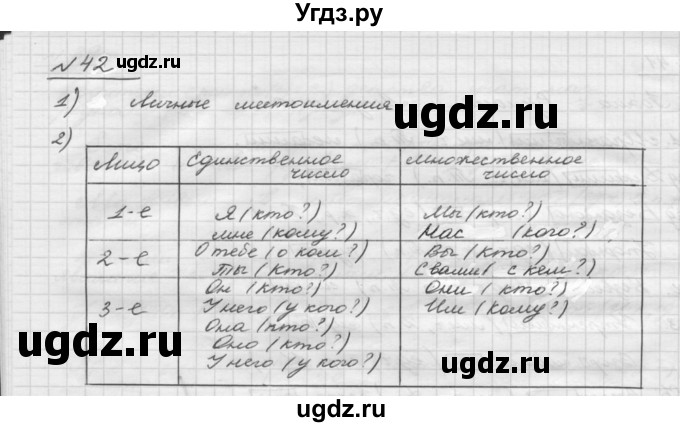 Угдз.ру
№42
ugdz.ru
ugdz.ru
1) Личные местоимения
ugdz.ru
2)
Лицо Единственное число множественное число
ugdz.ru
1-е Я (кто?) Мы (кто?)
мне (кому?) Нас (кого?)
2-е О тебе (о ком?) Вы (кто?)
Ты (кто?) С вами (с кем?)
Он (кто?) Они (кто?)
3-е У него (у кого?) Им (кому?)
Она (кто?)
Оно (кто?)
У него (у кого?)
ugdz.ru
ugdz.ru
ugdz.ru
ugdz.ru